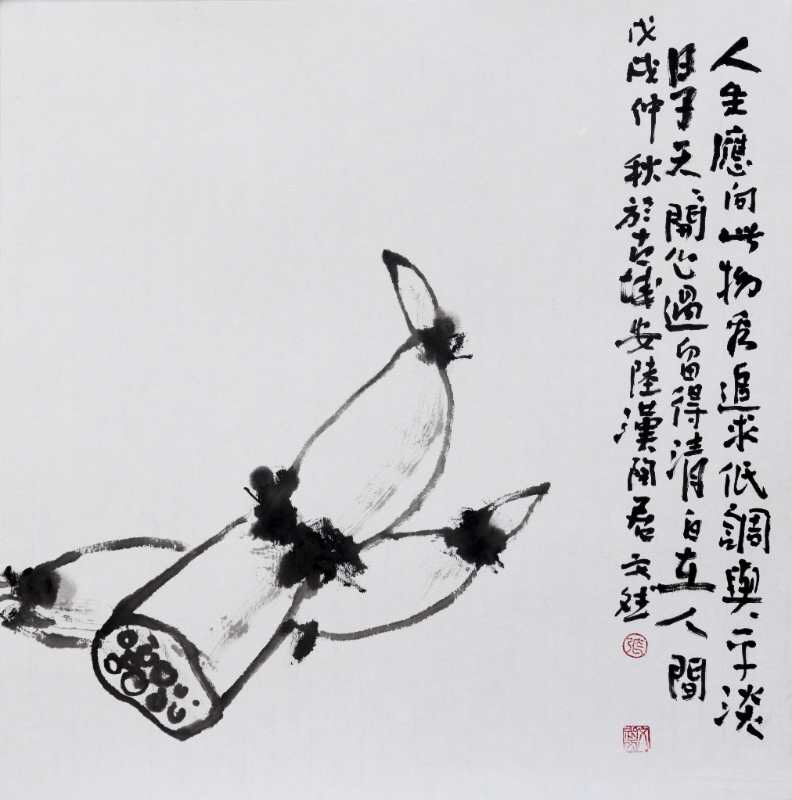 人生應向此物看追求低調與平淡
日子天天開心過留得清白在人間
戊戌仲秋於古城安陸漢陶居文
張